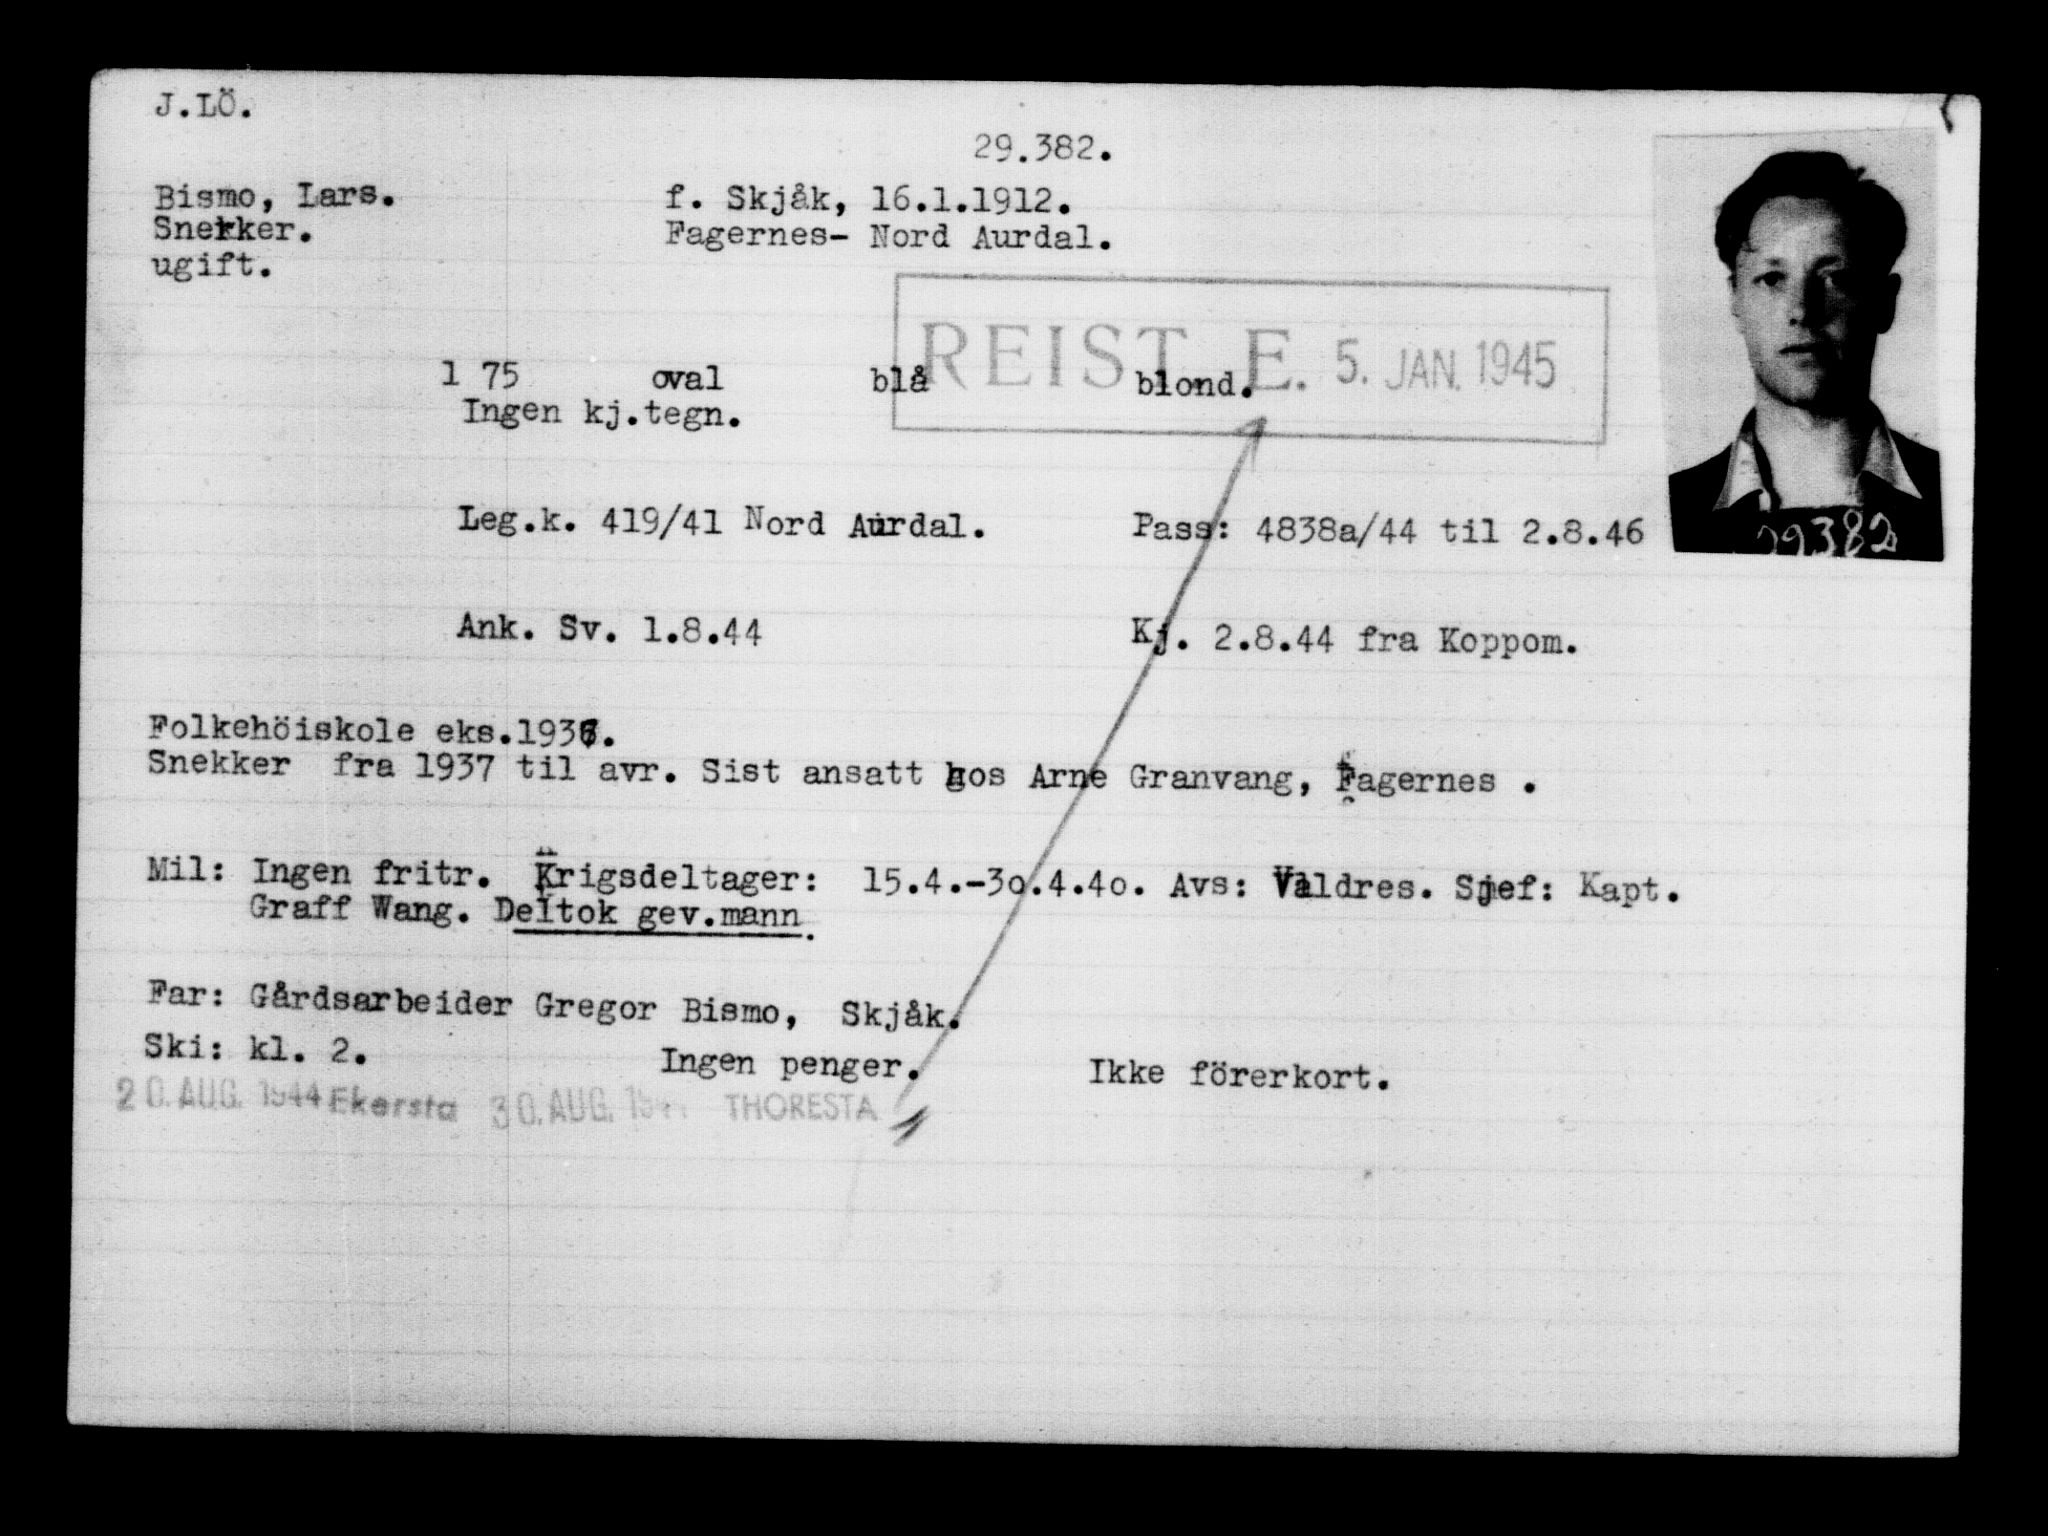 J.LÖ.
29.382.
Bismo, Lars. f. Skjåk, 16.1.1912.
Snekker. Fagernes- Nord Aurdal.
ugift.
REIST E. 5. JAN. 1945
1 75 oval blå blond.
Ingen kj.tegn.
Leg.k. 419/41 Nord Aurdal. Pass: 4838a/44 til 2.8.46
29382
Ank. Sv. 1.8.44 Kj. 2.8.44 fra Koppom.
Folkehöiskole eks.
Snekker fra 1937 til avr. Sist ansatt hos Arne Granvang, Fagernes .
Mil: Ingen fritr. Krigsdeltager: 15.4.-30.4.40. Avs: Valdres. Sjef: Kapt.
Graff Wang. Deltok gev.mann.
Far: Gårdsarbeider Gregor Bismo, Skjåk.
Ski: kl. 2. Ingen penger. Ikke förerkort.
20. AUG. 1944 Ekersta 30. AUG. THORESTA